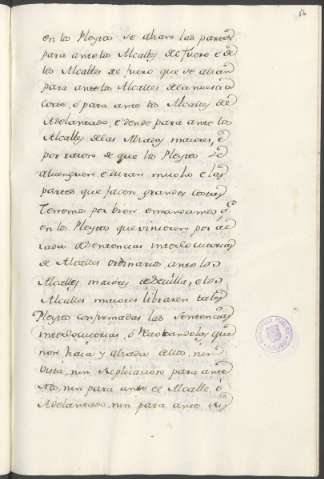 en los Pleytos se alzare las partes
para ante los Alcalles de fuero e de
los Alcalles de fuero que se alzan
para ante los Alcalles de la nuestra
corte, o para ante los Alcalles del
Adelantado, e dende para ante los
Alcalles de las Alzadas maiores, e
por razon de que los Pleytos se
aluenguen e duran mucho e las
partes que facen grandes costas
Tenemos por bien e mandamos q.
en los Pleytos que vinieren por al
zada de sentencias interlocutorias
de Alcalles ordinarios ante los
Alcalles maiores de Sevilla, e los
Alcalles maiores libraren tales
Pleytos confirmadas las sentencias
interlocutorias, o revocandolas que
non haia y alzada dello, nin
vista, nin suplicacion para ante
Nos, nin para ante el Alcalle, o
Adelantado, nin para ante